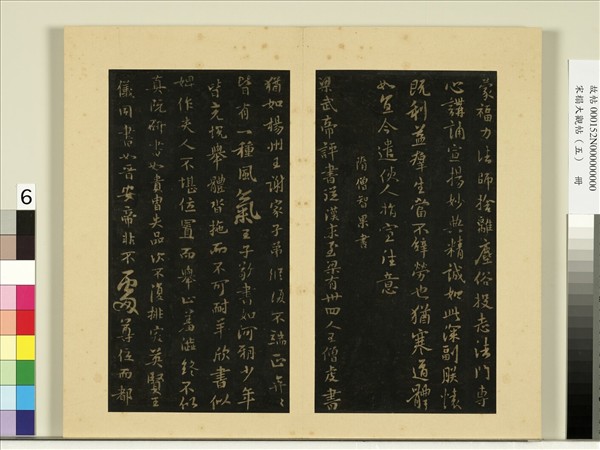 蒙福力法師捨離塵俗投志法門專
心講誦宣揚妙典精誠如此深副朕懷
既利益群生當不辭勞也猶寒道體
如宜今遣使人指宣往意
隋僧智果書
梁武帝評書從漢末至梁有卅四人王僧虔書
猶如楊州王謝家子弟縱復不端正弈弈
皆有一種風氣王子敬書如河朔少年
皆充悅舉體沓拖而不可耐羊欣書似
婢作夫人不堪位置而舉止羞澀終不似
真阮研書如貴胄失品次不復排突英賢王
儀同書如晉安帝非不處尊位而都
故帖000152N000000000
宋搨大觀帖(五) 冊
6